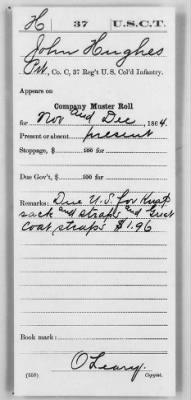 H 37 U.S.C.T.
John Hughes
Pvt, Co. C, 37 Reg't U.S. Col'd Infantry.
Appears on
Company Muster Roll
for Nov and Dec, 1864.
Present or absent present
Stoppage, $ 100 for
Due Gov't, $ 100 for
Remarks: Due U.S. for Knap
sack and straps and Great
Coat straps $1.96
Book mark:
O'Leary.
(358) Copyist.